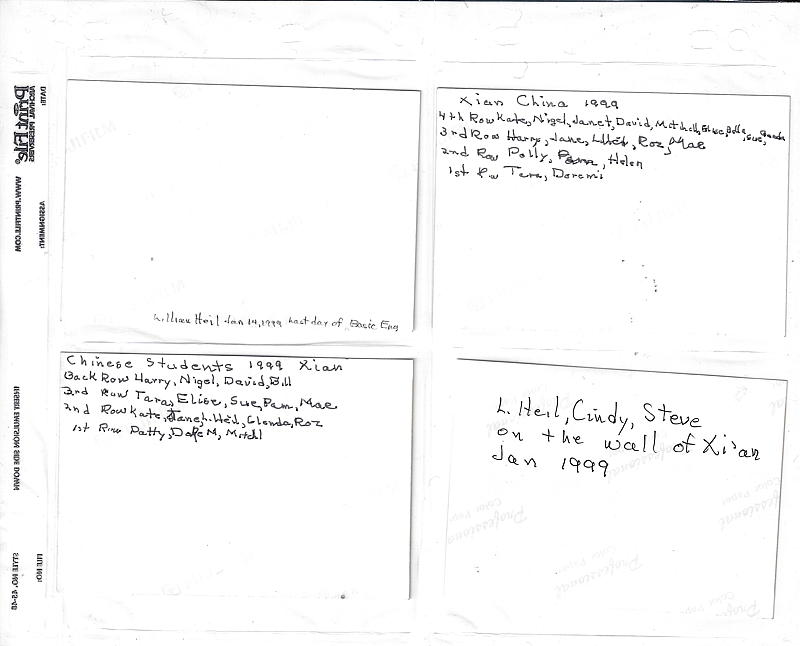 Lillian Heil Jan 14, 1999 Last day of Basic Eng
Xian China 1999
4th Row Kate, Nigel, Janet, David, Mitchell, Elise, Bill, Sue, Glenda
3rd Row Harry, Jane, LHeil, Roz, Mae
2nd Row Polly, Helen
1st Row Tara,
Chinese Students 1999 Xian
Back Row Harry, Nigel, David, Bill
3rd Row Tara, Elise, Sue, Pam, Mae
2nd Row Kate, Jane, L. Heil, Glenda, Roz
1st Row Patty,
L. Heil, Cindy, Steve
on the wall of Xi'an
Jan 1999
DATE:
ARCHIVAL PRESERVERS
Print File®
WWW.PRINTFILE.COM
ASSIGNMENT:
INSERT EMULSION SIDE DOWN
FILE NO:
STYLE NO.
Professional
Color Paper